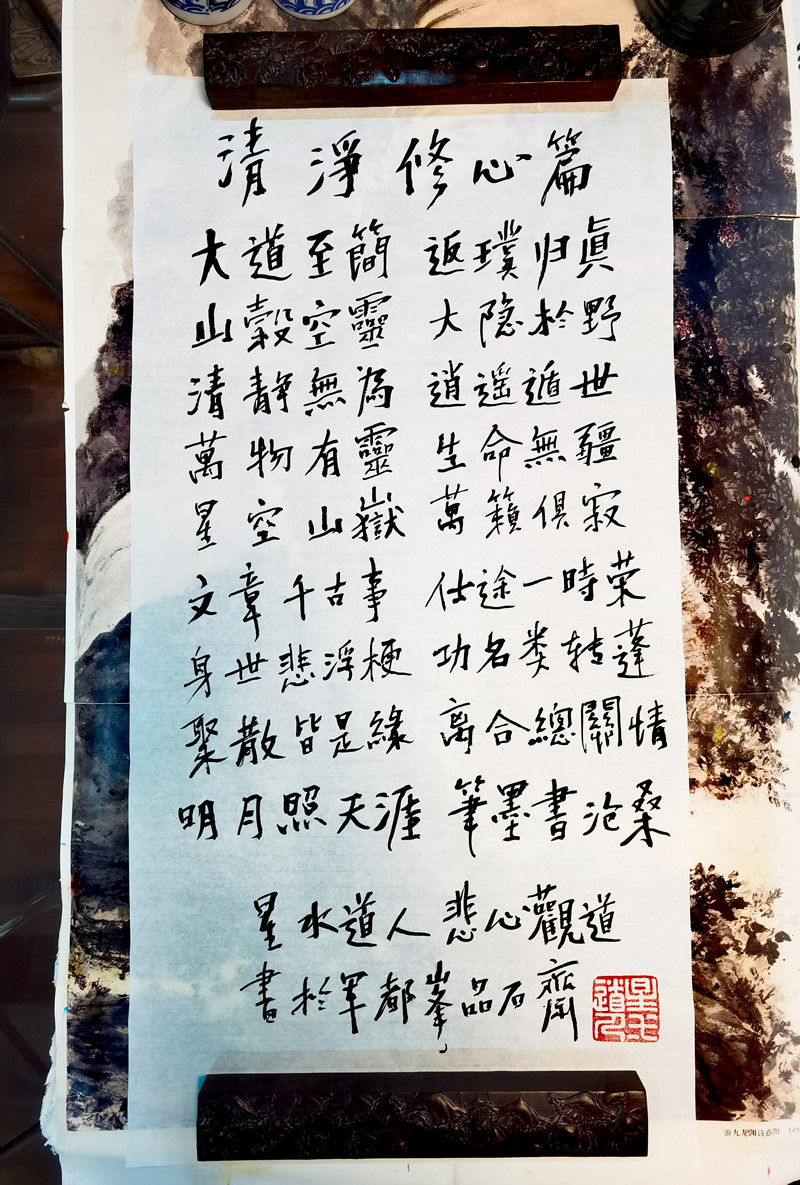 清淨修心篇
大道至簡 返璞归真
山穀空靈 大隐於野
清静無為 逍遥遁世
萬物有靈 生命無疆
星空山嶽 萬籟俱寂
文章千古事 仕途一時荣
身世悲浮梗 功名类转蓬
聚散皆是緣 离合總關情
明月照天涯 筆墨書沧桑
星水道人 悲心觀道
書於军都峯品石齋